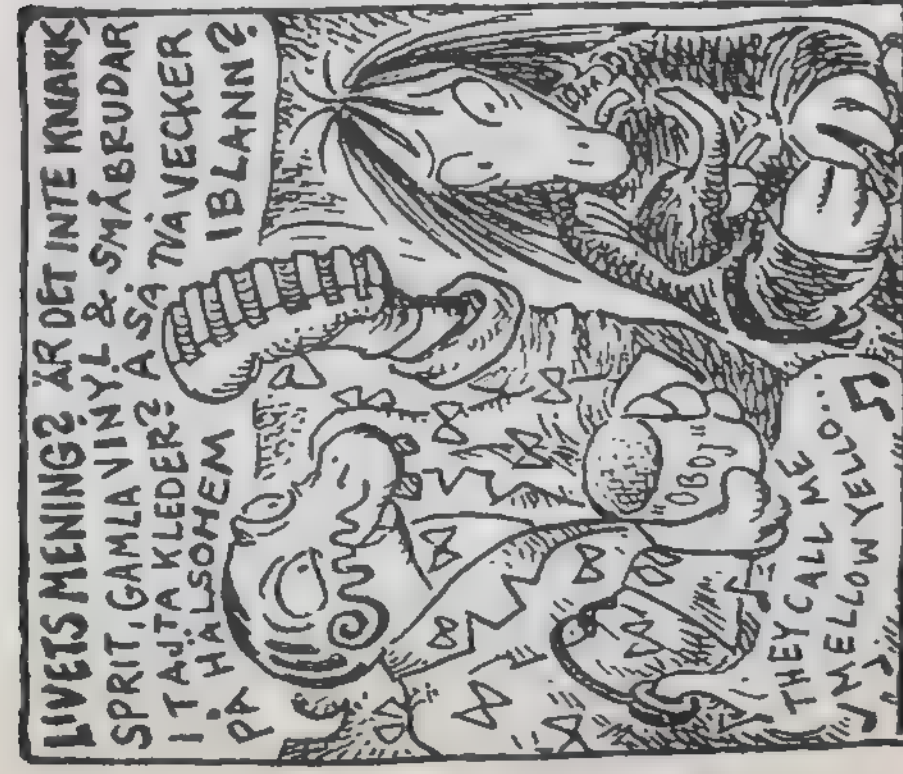 LIVETS MENING? ÄR DET INTE KNARK
SPRIT, GAMLA VINYL & SMÅBRUDAR
I TAJTA KLEDER? Å SÅ TVÅ VECKER
PÅ HÄLSOHEM IBLANN?
"OBOJ"
THEY CALL ME
MELLOW YELLO...